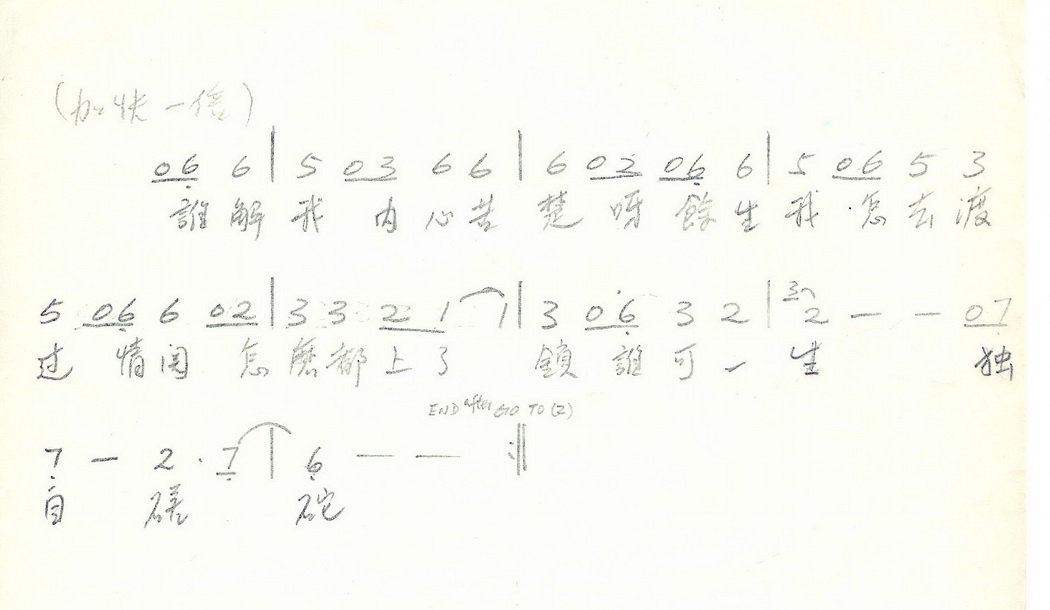 (加快一倍)
06 6 | 5 03 6 6 | 6 03 06 6 | 5 06 5 3
誰解我 内心苦楚 呀 餘生我·怎去渡
5 06 6 02 | 3 3 2 1 1 | 3 06 3 2 | 32 2 — — 07
过 情関 怎麽都上了 鎖 誰可一生 独
END after GO TO (2)
7 — 2 · 7 | 6 — — ‖
自 磋 砣